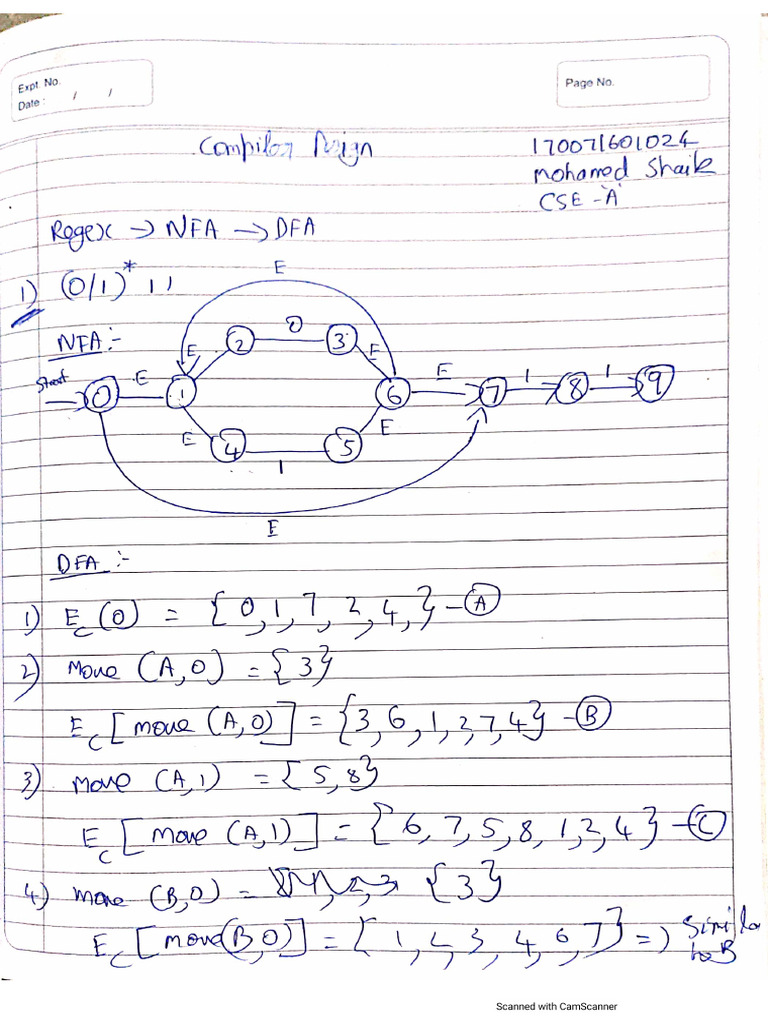 Expt. No.
Date : / /
Page No.
Compiler Design
170071601024
Mohamed Shaik
CSE -'A'
Regex → NFA → DFA
1) (0/1)* 11
NFA :-
Start 0 E 1 E 2 0 3 E 6 E 7 1 8 1 9
E 4 1 5 E
E
E
DFA :-
1) Ec(0) = {0,1,7,2,4,} - A
2) Move (A,0) = {3}
Ec[move (A,0)] = {3,6,1,2,7,4} - B
3) move (A,1) = {5,8}
Ec[move (A,1)] = {6,7,5,8,1,2,4} - C
4) move (B,0) = {3}
Ec[move(B,0)] = {1,2,3,4,6,7} => Similar
to B
Scanned with CamScanner